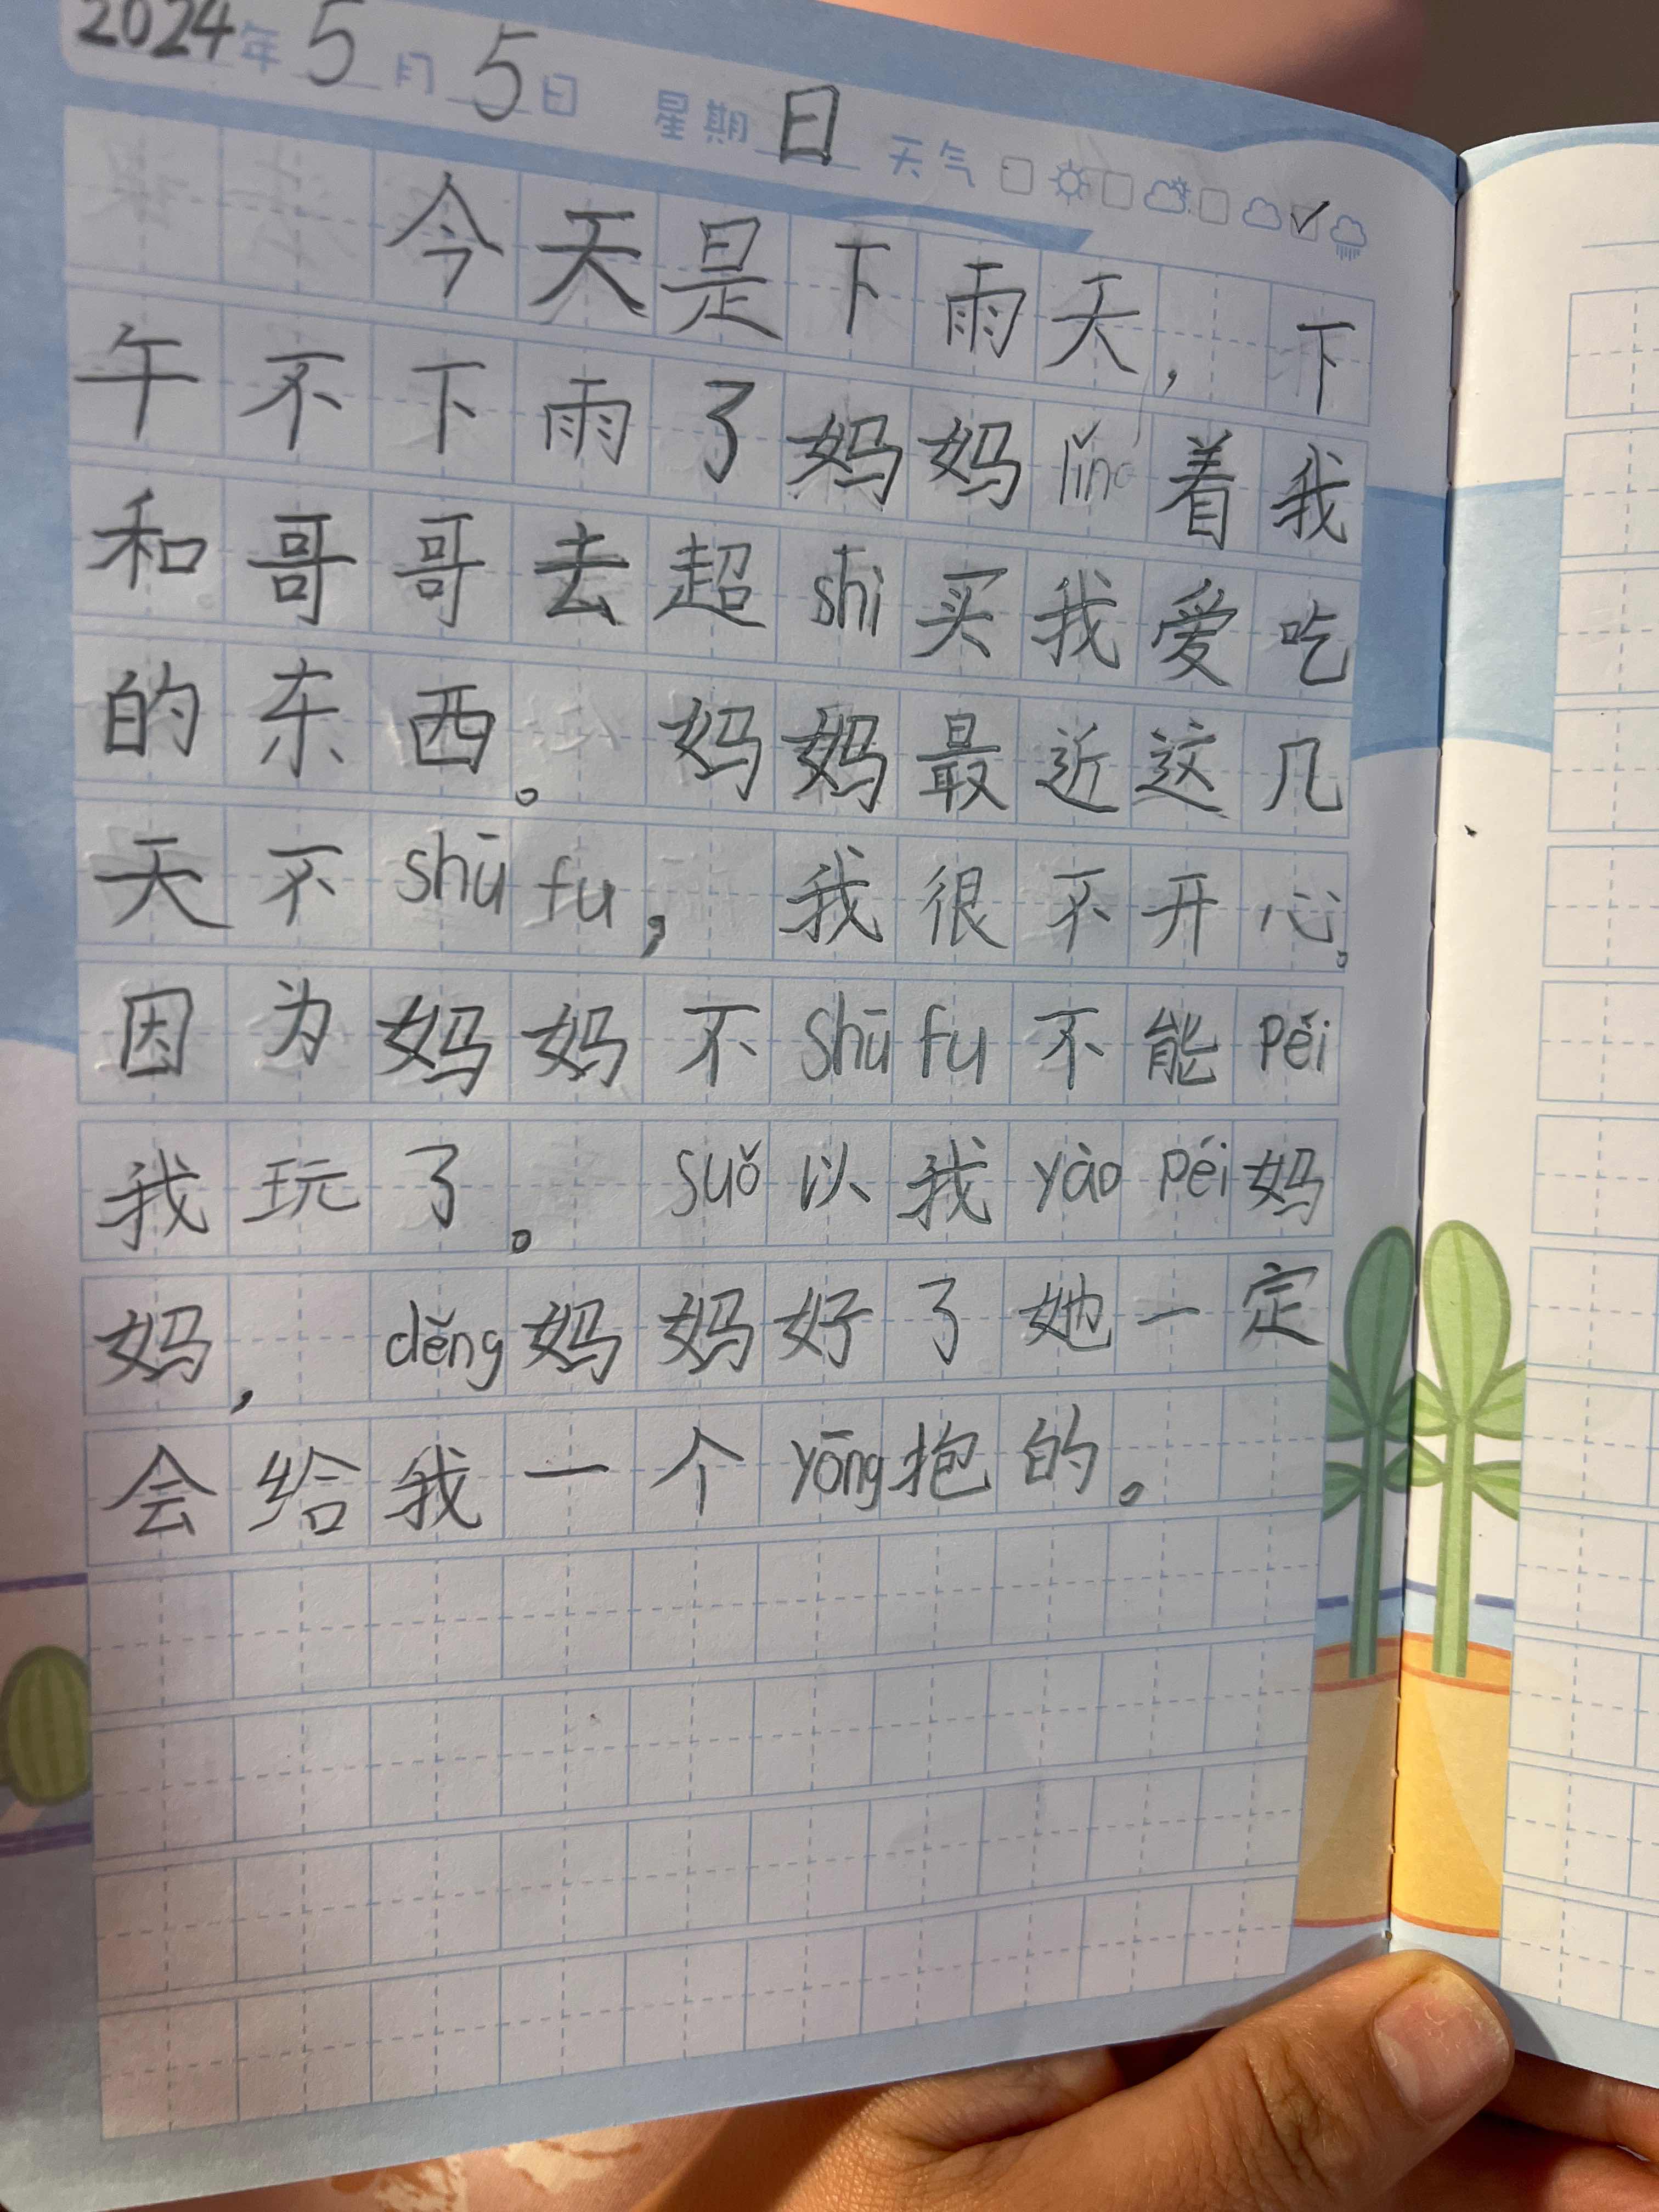 2024年5月5日 星期日 天气
今天是下雨天，下
午不下雨了妈妈lǐng着我
和哥哥去超shì买我爱吃
的东西。妈妈最近这几
天不shūfu，我很不开心。
因为妈妈不shūfu不能péi
我玩了。suǒ以我yàopéi妈
妈，děng妈妈好了她一定
会给我一个yōng抱的。